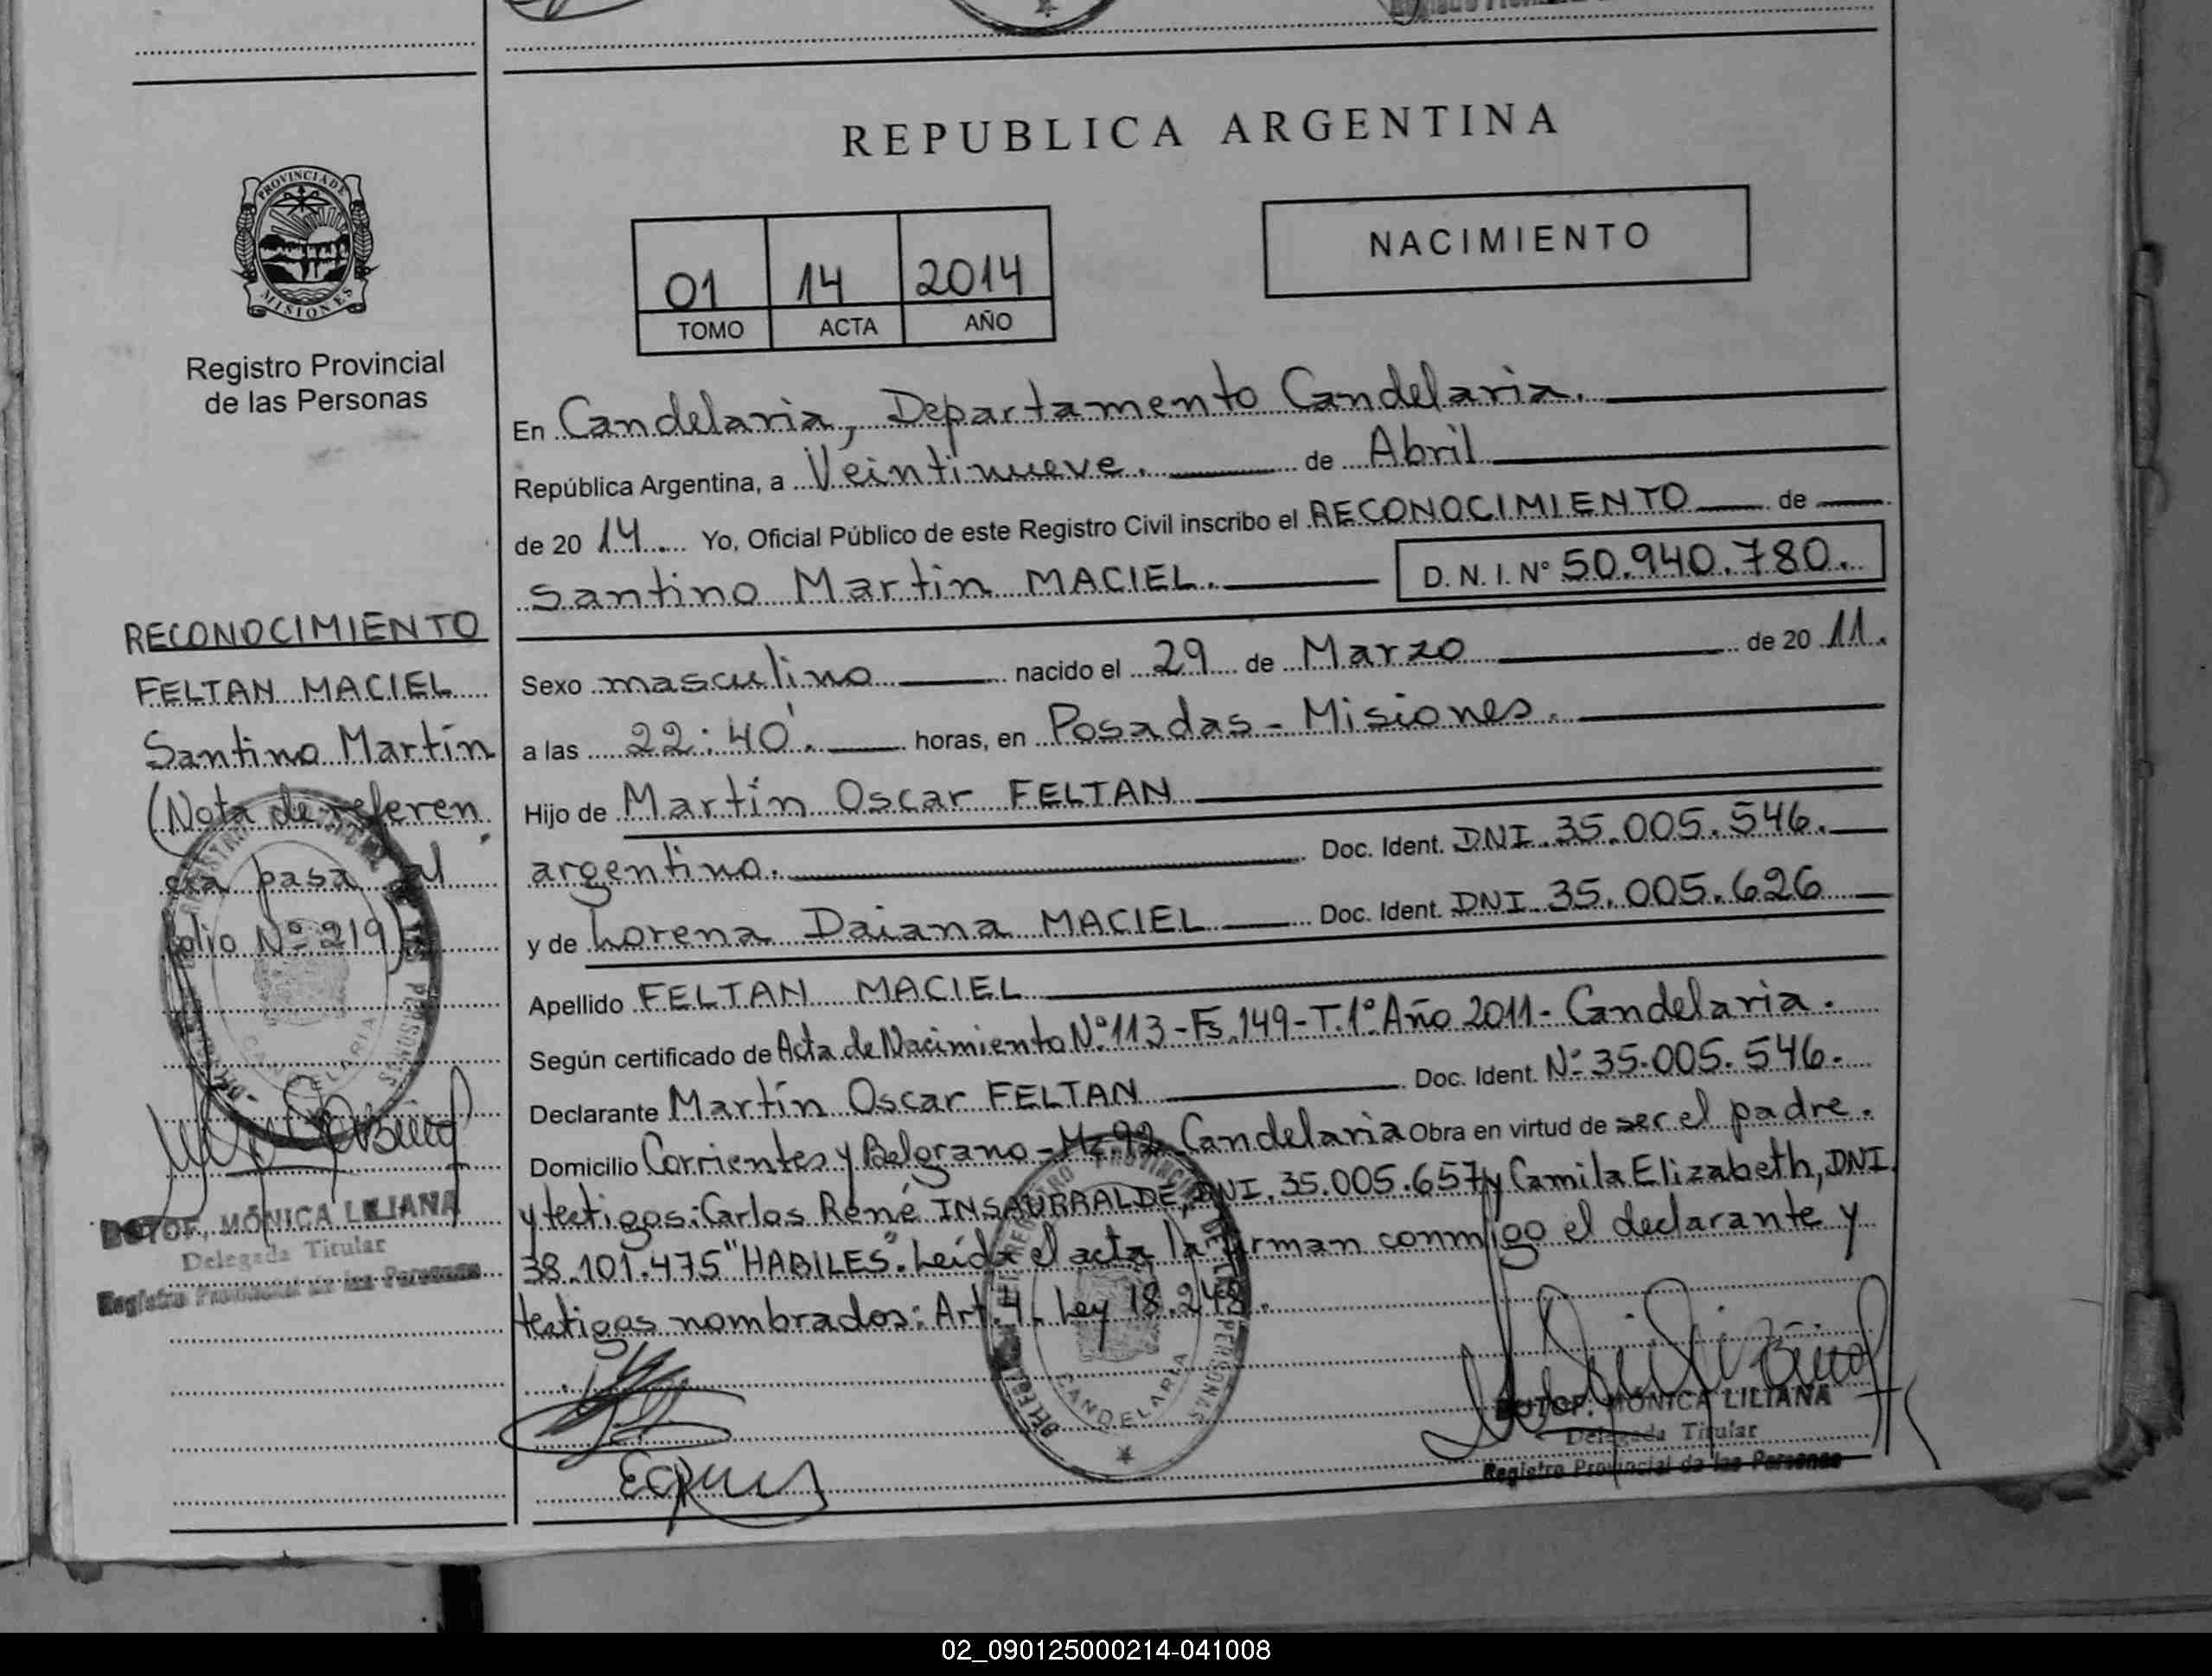 REPUBLICA ARGENTINA
PROVINCIA DE
MISIONES
Registro Provincial
de las Personas
01 14 2014
TOMO ACTA AÑO
NACIMIENTO
En Candelaria, Departamento Candelaria.
República Argentina, a Veintinueve. de Abril
de 20 14. Yo, Oficial Público de este Registro Civil inscribo el RECONOCIMIENTO de
Santino Martin MACIEL. D. N. I. Nº 50.940.780.
Sexo masculino nacido el 29 de Marzo de 20 11.
a las 22:40'. horas, en Posadas - Misiones.
Hijo de Martín Oscar FELTAN
argentino. Doc. Ident. DNI. 35.005.546.
y de Lorena Daiana MACIEL Doc. Ident. DNI. 35.005.626
Apellido FELTAN MACIEL
Según certificado de Acta de Nacimiento Nº 113 - Fs. 149 - T. 1º Año 2011 - Candelaria.
Declarante Martín Oscar FELTAN Doc. Ident. Nº 35.005.546.
Domicilio Corrientes y Belgrano - Mz. 92 Candelaria Obra en virtud de ser el padre.
y testigos: Carlos René INSAURRALDE, DNI. 35.005.657 y Camila Elizabeth, DNI.
38.101.475 "HABILES". Leída el acta la firman conmigo el declarante y
testigos nombrados: Art. 4. Ley 18.248.
RECONOCIMIENTO
FELTAN MACIEL
Santino Martín
(Nota de referen
cia pasa al
folio Nº 219)
BOTOF, MÓNICA LILIANA
Delegada Titular
Registro Provincial de las Personas
CANDELARIA
BOTOF, MÓNICA LILIANA
Delegada Titular
Registro Provincial de las Personas
02_090125000214-041008